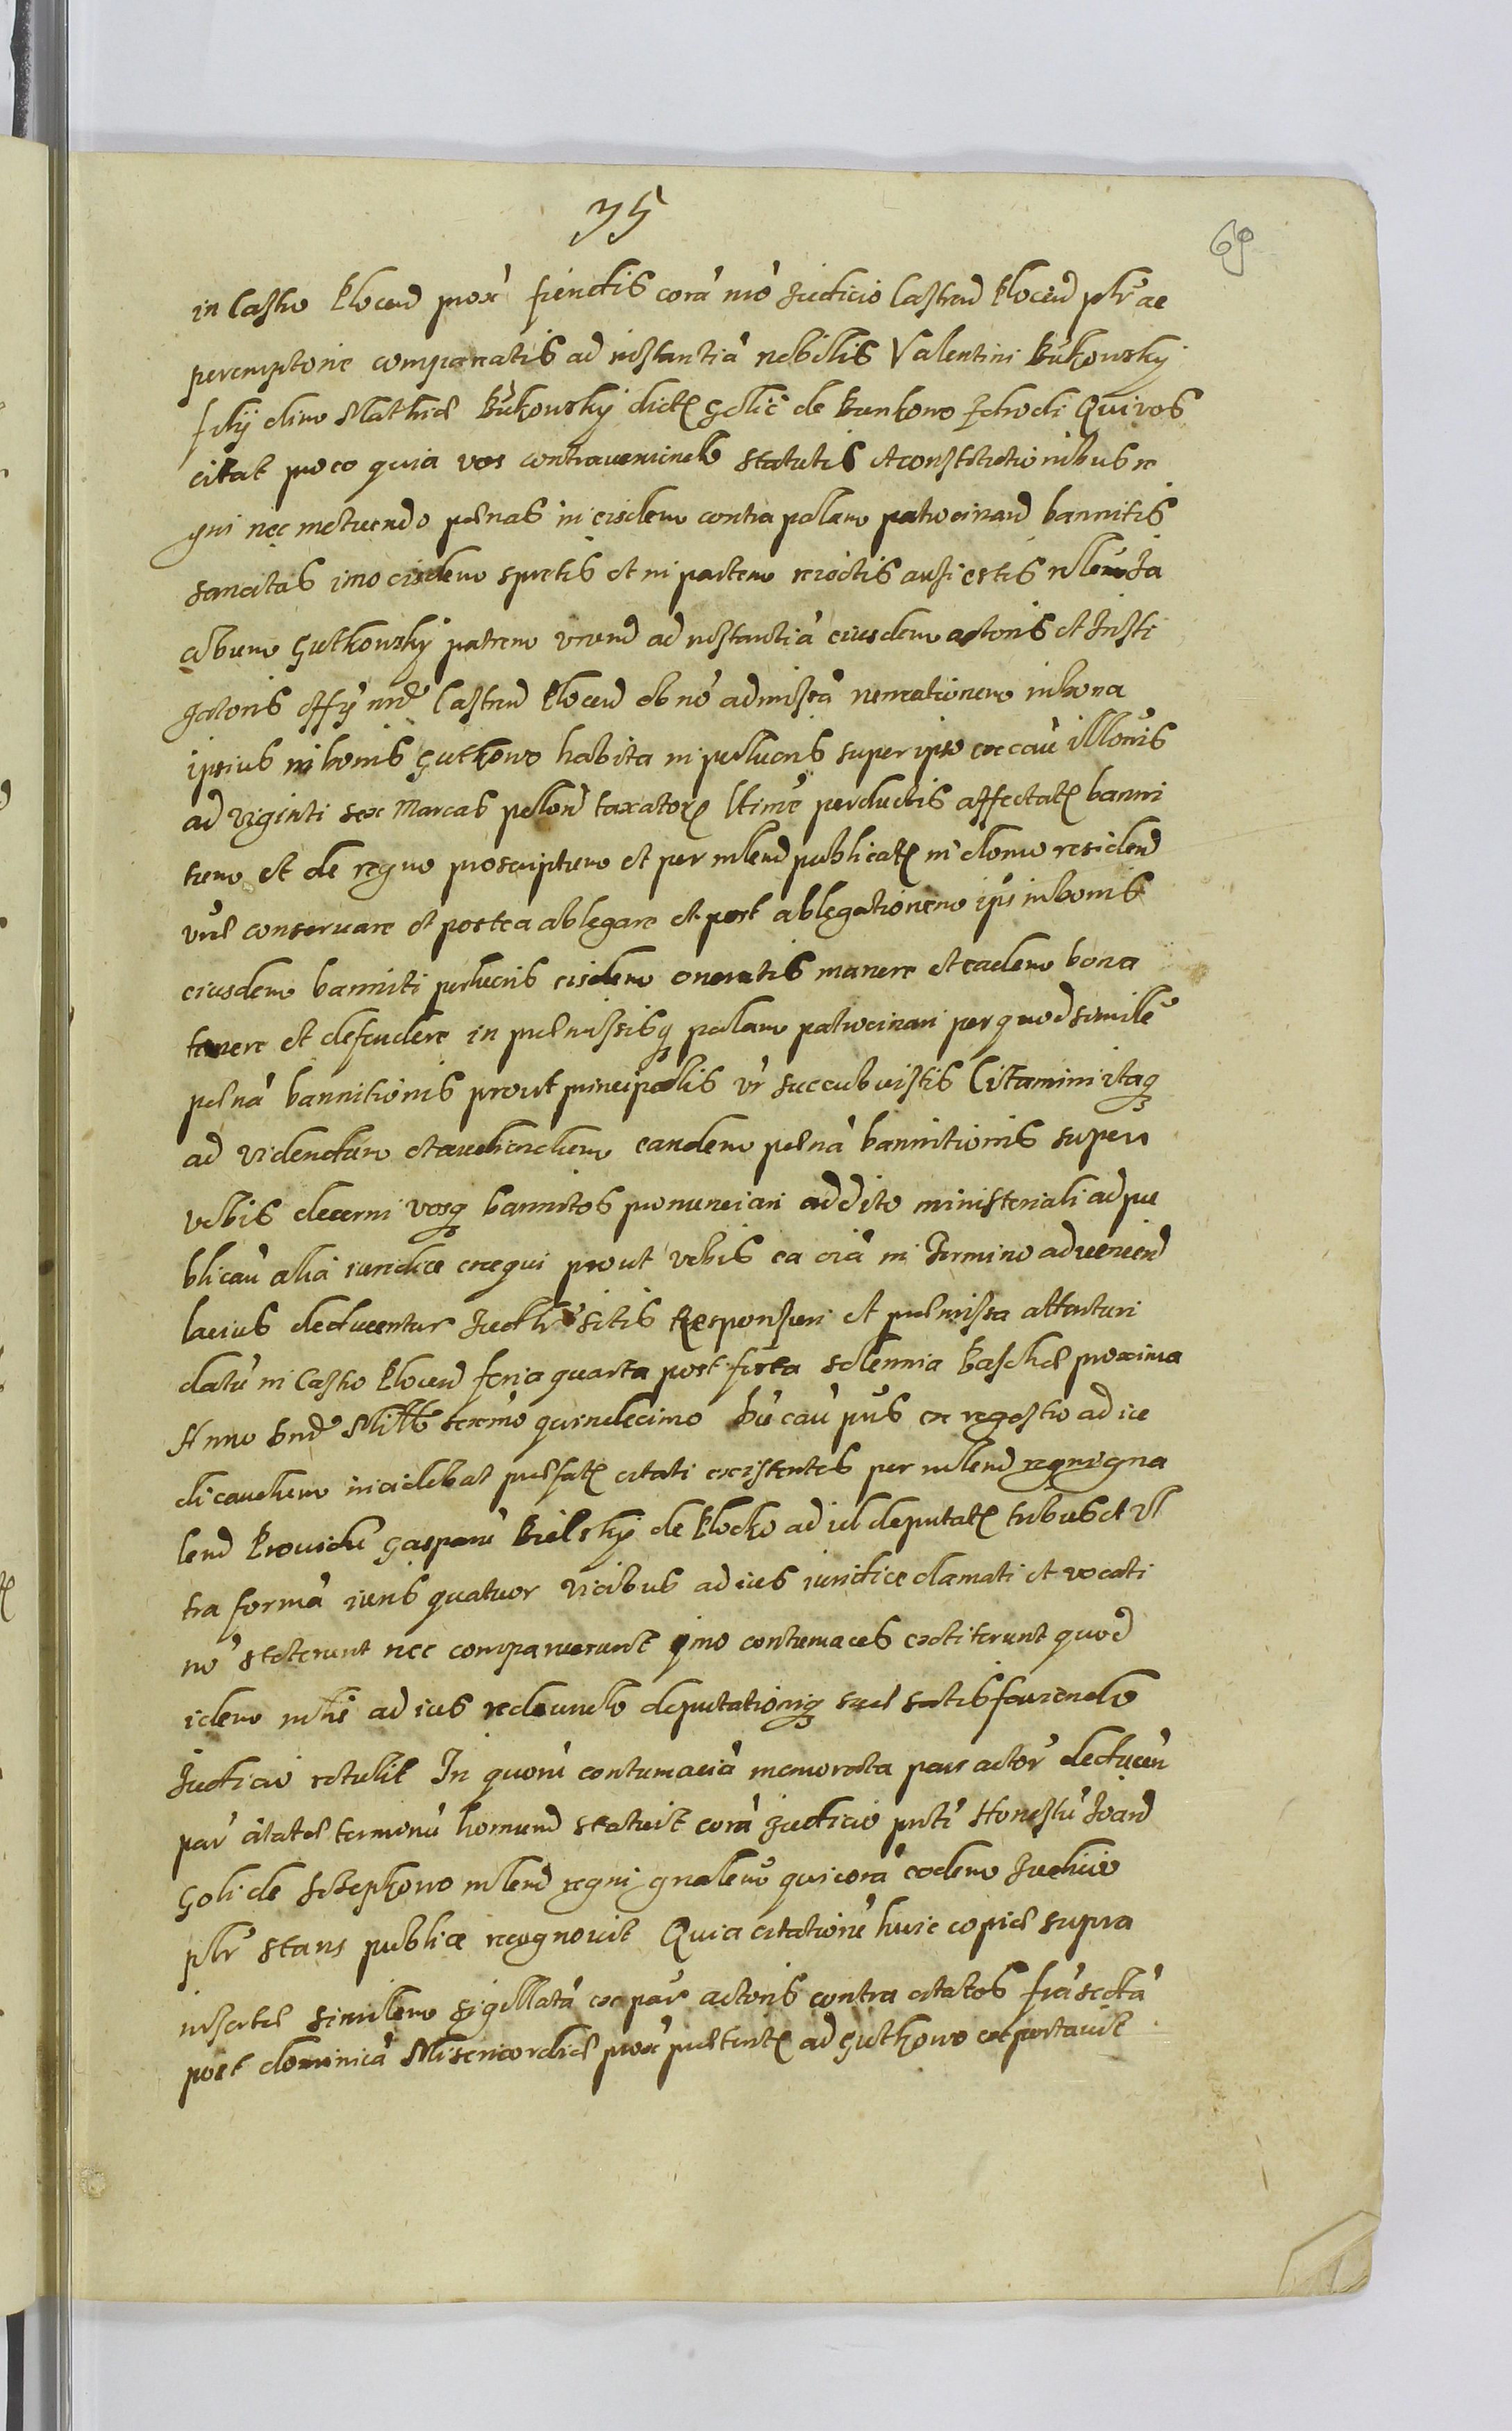 35
69
in Castro Plocen prox fiendis corā nrō Judicio Castren Plocen plr ac
peremptorie comparatis ad instantiā nobilis Valentini Bukowsky
filij olim Mathiæ Bukowskij dict Golic de Bunkowo Quivos
citat pro eo quia vos contraveniendo statutis et constitutionibus re
gni nec metuendo pænas in eisdem contra palam patrocinand bannitis
sancitas imo eisdem spretis et in partem reiectis ausi estis nobilem Ja
cobum Gutkowskij patrem vrum ad instantiā eiusdem actoris et Insti
gatoris offÿ nrī Castren Plocen ob nō admissā remotionem in bona
ipsius in bonis Gutkowo habita in pecunis super ipso ex caū illoris
ad viginti sex Marcas polon taxator ltime perductis affectat banni
tum et de regno proscriptum et per mlem publicat in domo residen
vrā conservare et postea ablegare et post ablegationem ipī in bonis
eiusdem banniti perlucris eisdem oneratis manere et eadem bona
tenere et defendere in præmissisq palam patrocinari per quod similē
pænā bannitionis prout principalis vr succubuistis Citamini itaq
ad videndum et audiendum eandem pænā bannitionis super
vobis decerni vosq bannitos pronunciari addito ministeriali ad pu
blicaū aliā iuridice exequi prout vobis ea oīa in Termino adveniend
lacius deducentur Judlr sitis Responsuri et præmissa attentaturi
datū in Castro Plocen feria quarta post festa solennia Paschæ proxima
Anno Dnī Milltō sexcmo quindecimo Dū caū pns ex regestro ad iu
dicandum incidebat præfat citati existentes per mlem regni gna
lem Providū Gasparū Bielskij de Plocko ad id deputat tribus et vl
tra formā iuris quatuor vicibus ad ius iuridice clamati et vocati
nō steterunt nec comparuerunt imo contumaces extiterunt quod
idem mlis ad ius redeundo deputationiq suæ satisfaciendo
Judicio retulit In quorū contumaciā memorata pars actor deducen
par citatæ terminū homund statuit corā Judicio pntī Honestū Joan
Goli de mlem regni gnalem qui corā eodem Judicio
plr stans publice recognovit Quia citationē huic copiæ supra
insertæ similem sigillatā ex par actoris contra citatos fiā sextā
post dominicā Misericordiæ prox præterit ad Gutkowo exportavit